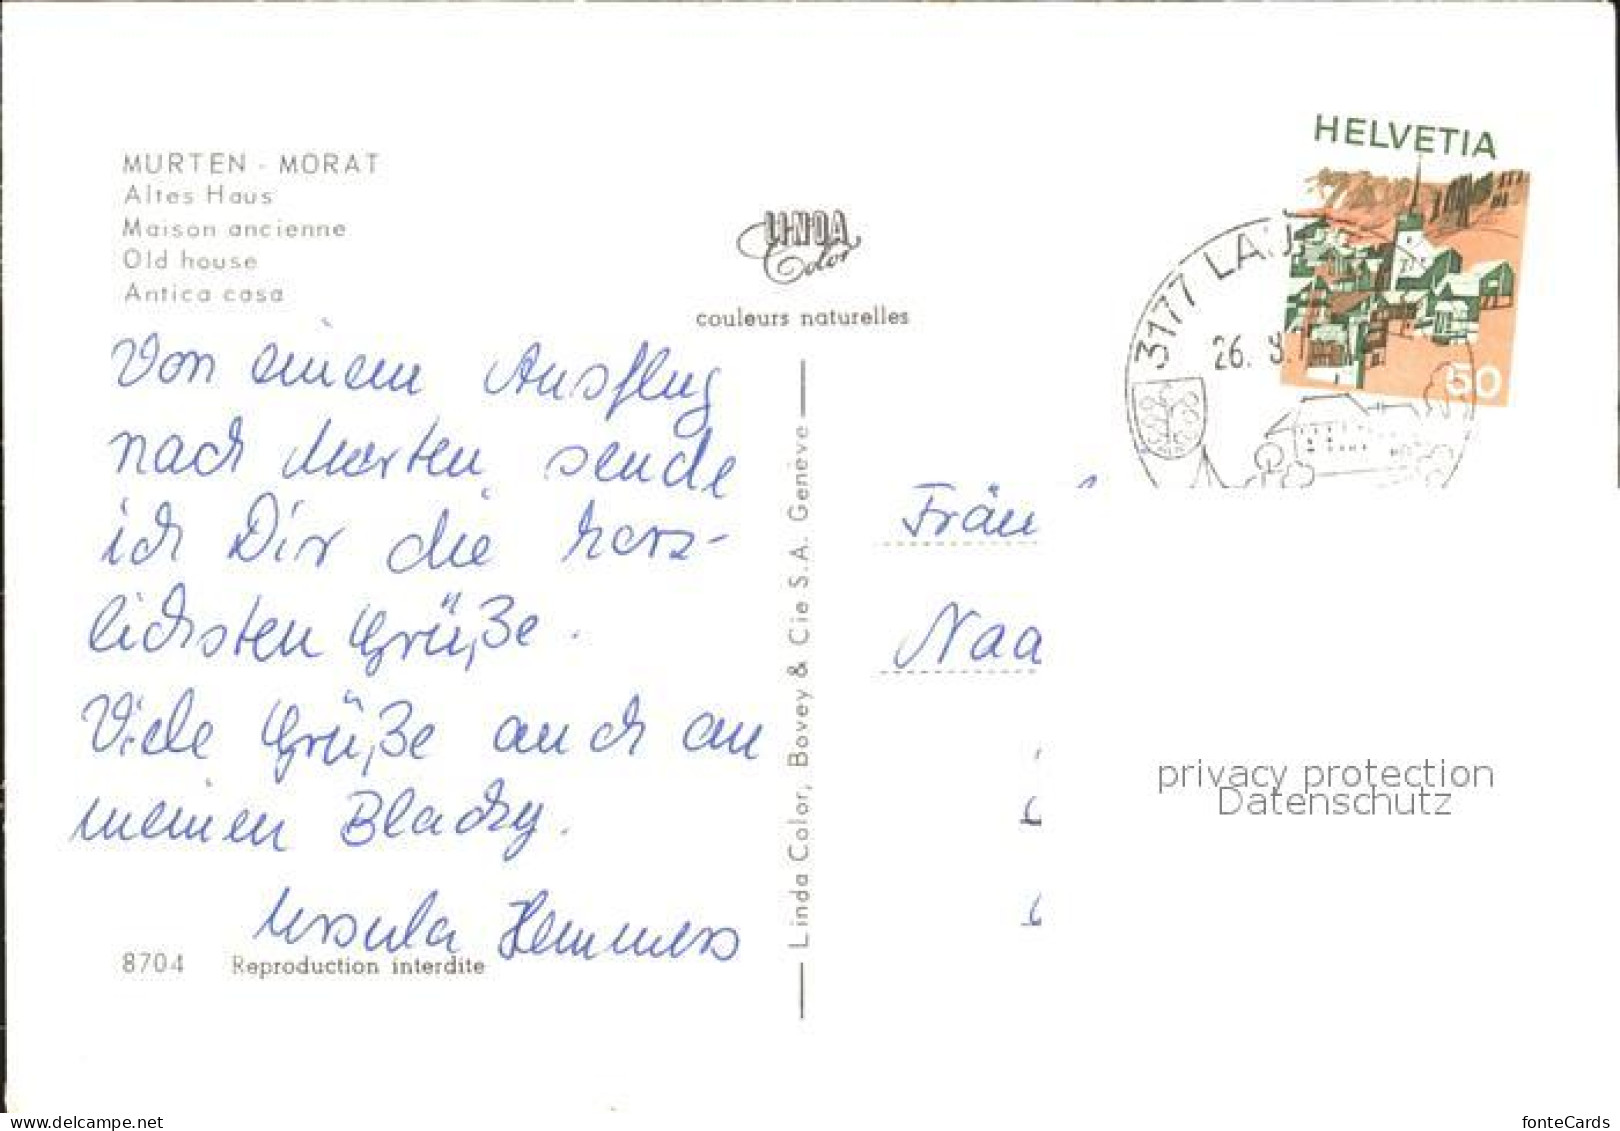 MURTEN - MORAT
Altes Haus
Maison ancienne
Old house
Antica casa
Von einem Ausflug
nach Murten sende
ich Dir die herz-
lichsten Grüße.
Viele Grüße auch an
meinen Blacky.
Ursula Hemmers
8704 Reproduction interdite
LINDA
Color
couleurs naturelles
Linda Color, Bovey & Cie S.A. Genève
HELVETIA
50
3177
26.
Fräu
Naa
privacy protection
Datenschutz
www.delcampe.net
fonteCards